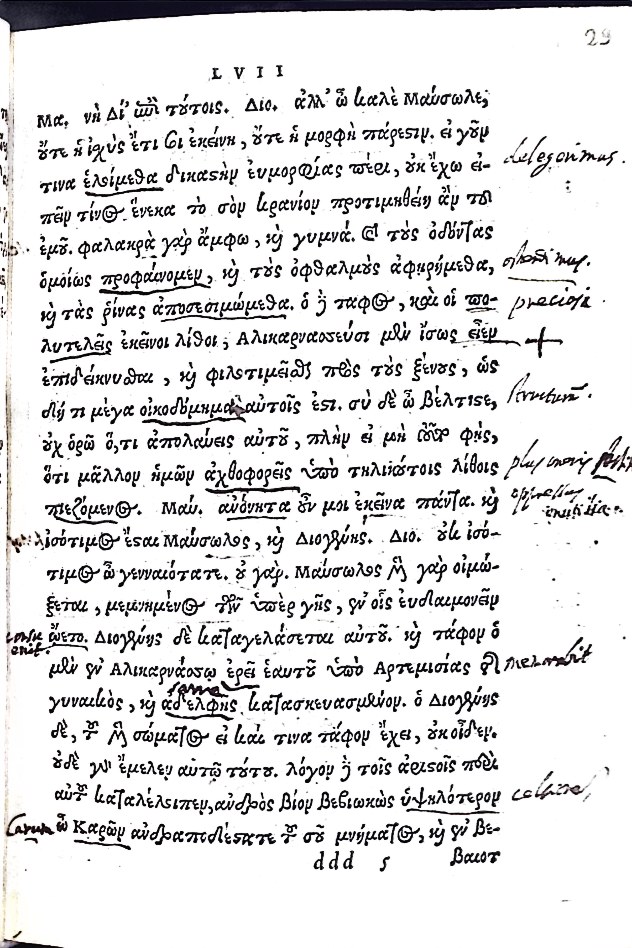 29
LVII
Μαύ. νὴ Δί' ἐπὶ τούτοις. Διο. ἀλλ' ὦ καλὲ Μαύσωλε,
οὔτε ἡ ἰσχὺς ἔτι σοι ἐκείνη, οὔτε ἡ μορφὴ πάρεστιν. εἰ γοῦν
τινα ἑλοίμεθα δικαστὴν εὐμορφίας πέρι, οὐκ ἔχω εἰ-
πεῖν τίνος ἕνεκα τὸ σὸν κρανίον προτιμηθείη ἂν τοῦ
ἐμοῦ. φαλακρὰ γὰρ ἄμφω, καὶ γυμνά. καὶ τοὺς ὀδόντας
ὁμοίως προφαίνομεν, καὶ τοὺς ὀφθαλμοὺς ἀφῃρήμεθα,
καὶ τὰς ῥῖνας ἀποσεσιμώμεθα. ὁ δὲ ταφος, καὶ οἱ πο-
λυτελεῖς ἐκεῖνοι λίθοι, Αλικαρνασσεῦσι μὲν ἴσως εἶεν
ἐπιδείκνυσθαι, καὶ φιλοτιμεῖσθαι πρὸς τοὺς ξένους, ὡς
δή τι μέγα οἰκοδόμημα αὐτοῖς ἐστι. σὺ δὲ ὦ βέλτιστε,
οὐχ ὁρῶ ὅ,τι ἀπολαύεις αὐτοῦ, πλὴν εἰ μὴ τοῦτο φῄς,
ὅτι μᾶλλον ἡμῶν ἀχθοφορεῖς ὑπὸ τηλικούτοις λίθοις
πιεζόμενος. Μαύ. ἀνόνητα οὖν μοι ἐκεῖνα πάντα. καὶ
ἰσότιμος ἔσται Μαύσωλος, καὶ Διογένης. Διο. οὐκ ἰσό-
τιμος ὦ γενναιότατε. οὐ γάρ. Μαύσωλος μὲν γὰρ οἰμώ-
ξεται, μεμνημένος τῶν ὑπὲρ γῆς, ἐν οἷς εὐδαιμονεῖν
ᾤετο. Διογένης δὲ καταγελάσεται αὐτοῦ. καὶ τάφον ὁ
μὲν ἐν Αλικαρνάσσῳ ἐρεῖ ἑαυτοῦ ὑπὸ Αρτεμισίας τῆς
γυναικὸς, καὶ ἀδελφῆς κατασκευασμένον. ὁ Διογένης
δὲ, τοῦ μὲν σώματος εἰ καί τινα τάφον ἔχει, οὐκ οἶδεν.
οὐδὲ γὰρ ἔμελεν αὐτῷ τούτου. λόγον δὲ τοῖς ἀρίστοις περὶ
αὐτοῦ καταλέλοιπεν, ἀνδρὸς βίον βεβιωκὼς ὑψηλότερον
ὦ Καρῶν ἀνδραποδέστατε τοῦ σοῦ μνήματος, καὶ ἐν βε-
ddd 5 βαιοτ
delegerimus.
ostendimus.
preciosi
structuram.
oppressus